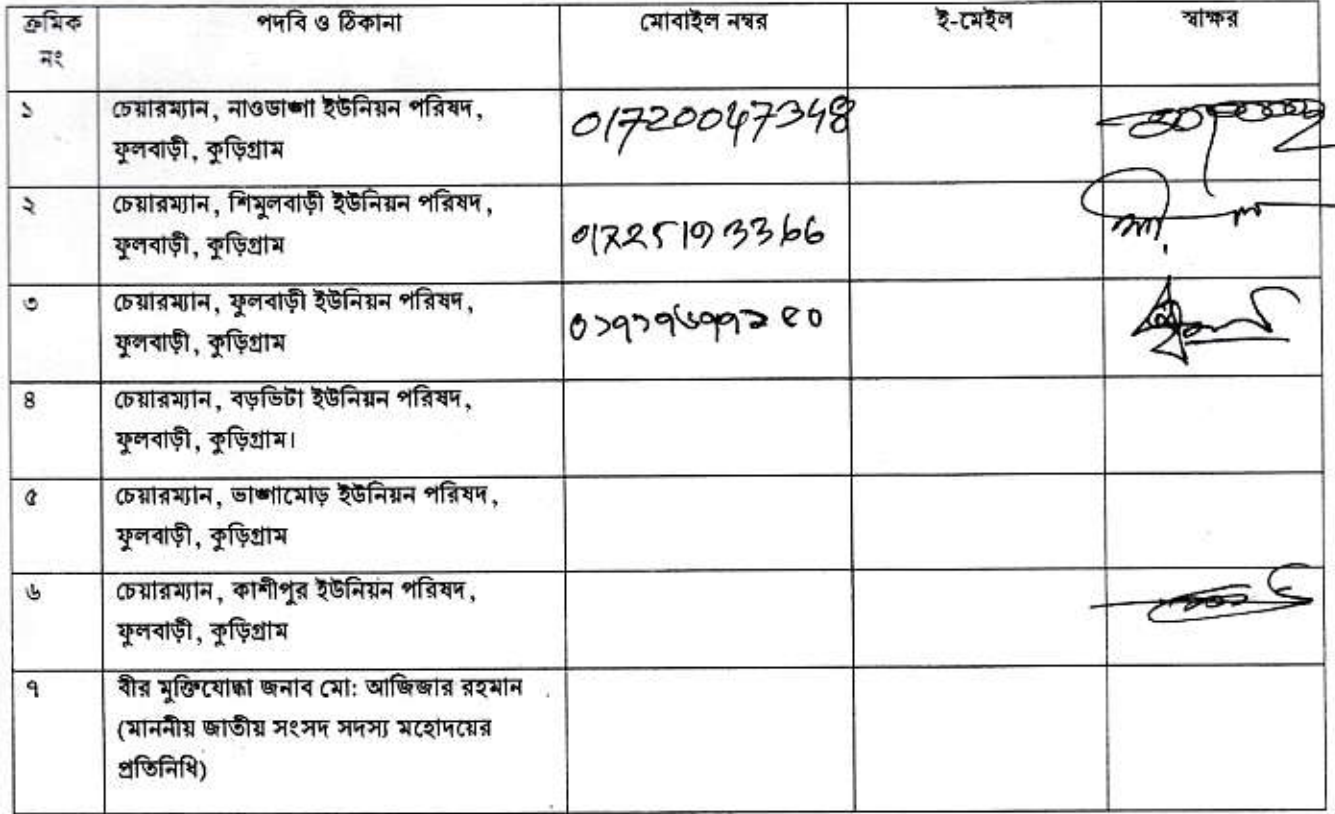 ক্রমিক নং পদবি ও ঠিকানা মোবাইল নম্বর ই-মেইল স্বাক্ষর
১ চেয়ারম্যান, নাওডাঙ্গা ইউনিয়ন পরিষদ, 01720047348
ফুলবাড়ী, কুড়িগ্রাম
২ চেয়ারম্যান, শিমুলবাড়ী ইউনিয়ন পরিষদ,
ফুলবাড়ী, কুড়িগ্রাম 01725193366
৩ চেয়ারম্যান, ফুলবাড়ী ইউনিয়ন পরিষদ,
ফুলবাড়ী, কুড়িগ্রাম
৪ চেয়ারম্যান, বড়ভিটা ইউনিয়ন পরিষদ,
ফুলবাড়ী, কুড়িগ্রাম।
৫ চেয়ারম্যান, ভাঙ্গামোড় ইউনিয়ন পরিষদ,
ফুলবাড়ী, কুড়িগ্রাম
৬ চেয়ারম্যান, কাশীপুর ইউনিয়ন পরিষদ,
ফুলবাড়ী, কুড়িগ্রাম
৭ বীর মুক্তিযোদ্ধা জনাব মো: আজিজার রহমান
(মাননীয় জাতীয় সংসদ সদস্য মহোদয়ের
প্রতিনিধি)